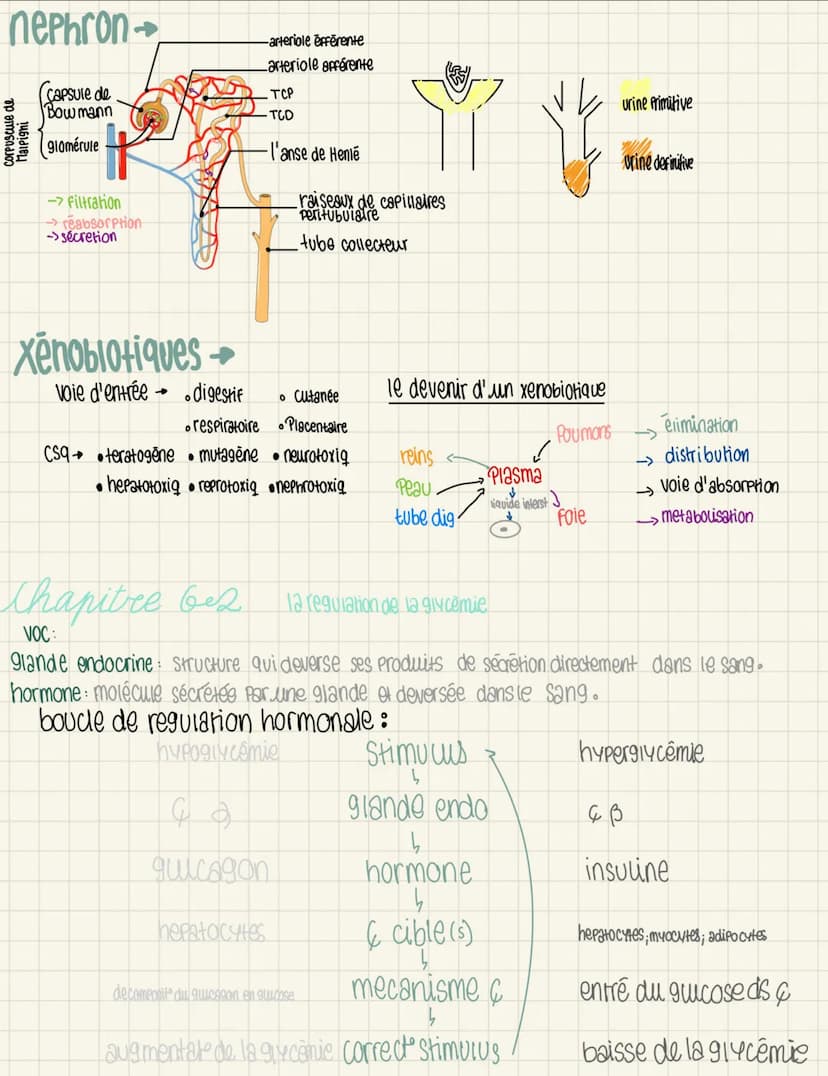 nephron →
artériole éfférente
artériole afférente
capsule de
Bowmann
glomérule
corpuscule de
Malpigni
TCP
TCD
l'anse de Henlé
raiseaux de capillaires
péritubulaire
tube collecteur
→ filtration
→ réabsorption
→ sécretion
urine primitive
urine definitive
xénobiotiques →
voie d'entrée → • digestif • cutanée
• respiratoire • Placentaire
csq → • teratogène • mutagène • neurotoxiq
• hepatotoxiq • reprotoxiq • nephrotoxiq
le devenir d'un xenobiotique
Poumons
reins
Peau
tube dig
Plasma
liquide interst
Foie
→ élimination
→ distribution
→ voie d'absorption
→ metabolisation
Chapitre 6e2 la regulation de la glycémie
voc:
glande endocrine : structure qui deverse ses produits de sécrétion directement dans le sang.
hormone : molécule sécrétée par une glande et deversée dans le sang.
boucle de regulation hormonale :
hypoglycémie stimulus hyperglycémie
¢ α glande endo ¢ β
glucagon hormone insuline
hepatocytes ¢ cible(s) hepatocytes; myocytes; adipocytes
decomposit° du glucagon en glucose mecanisme ¢ entré du glucose ds ¢
augmentat° de la glycémie correct° stimulus baisse de la glycémie